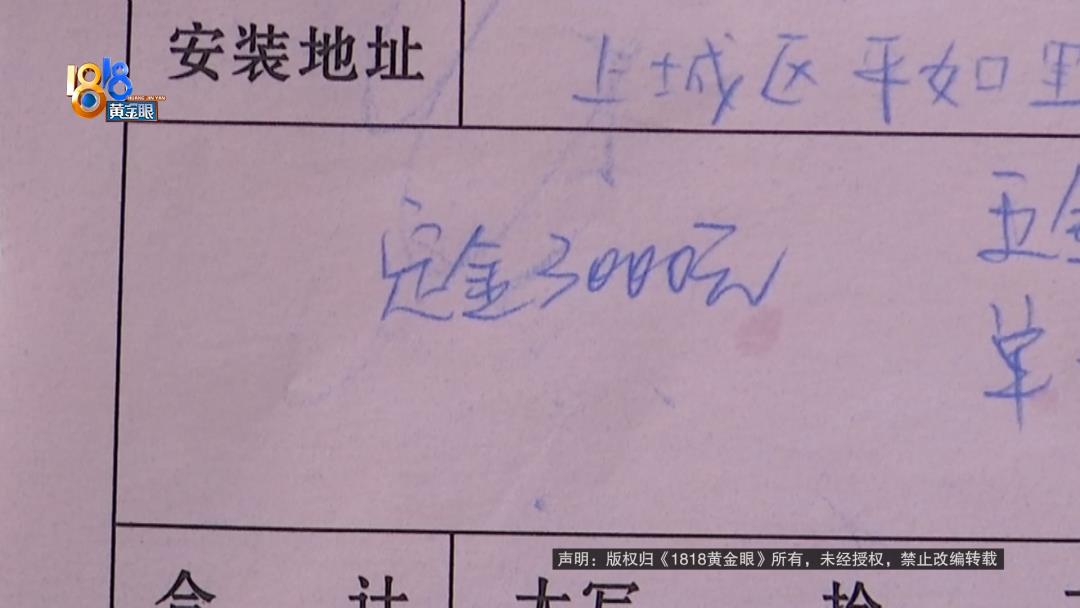 安装地址
上城区平如里
1818
HUANG JIN YAN
黄金眼
定金3000元
五金
单
声明：版权归《1818黄金眼》所有，未经授权，禁止改编转载
合 计 大写 拾